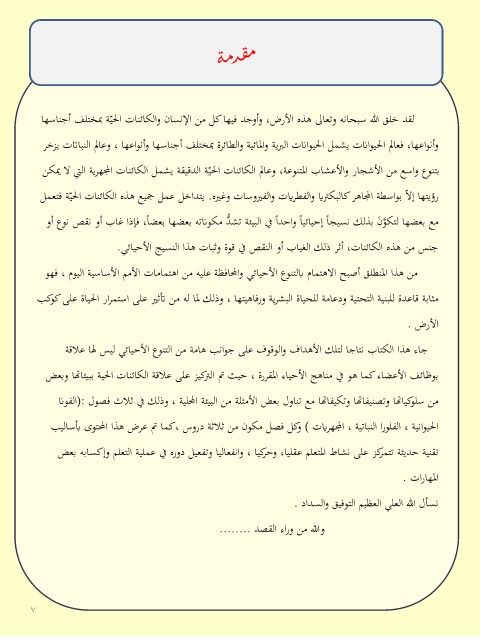 مقدمة
لقد خلق الله سبحانه وتعالى هذه الأرض، وأوجد فيها كل من الإنسان والكائنات الحيّة بمختلف أجناسها
وأنواعها، فعالم الحيوانات يشمل الحيوانات البرية والمائية والطائرة بمختلف أجناسها وأنواعها ، وعالم النباتات يزخر
بتنوع واسع من الأشجار والأعشاب المتنوعة، وعالم الكائنات الحيّة الدقيقة يشمل الكائنات المجهرية التي لا يمكن
رؤيتها إلاّ بواسطة المجاهر كالبكتريا والفطريات والفيروسات وغيره. يتداخل عمل جميع هذه الكائنات الحيّة فتعمل
مع بعضها لتكوّن بذلك نسيجاً إحيائياً واحداً في البيئة تشدُّ مكوناته بعضها بعضاً، فإذا غاب أو نقص نوع أو
جنس من هذه الكائنات، أثر ذلك الغياب أو النقص في قوة وثبات هذا النسيج الأحيائي.
من هذا المنطلق أصبح الاهتمام بالتنوع الأحيائي والمحافظة عليه من اهتمامات الأمم الأساسية اليوم ، فهو
مثابة قاعدة للبنية التحتية ودعامة للحياة البشرية ورفاهيتها ، وذلك لما له من تأثير على استمرار الحياة على كوكب
الأرض .
جاء هذا الكتاب نتاجا لتلك الأهداف والوقوف على جوانب هامة من التنوع الأحيائي ليس لها علاقة
بوظائف الأعضاء كما هو في مناهج الأحياء المقررة ، حيث تم التركيز على علاقة الكائنات الحية ببيئاتها وبعض
من سلوكياتها وتصنيفاتها وتكيفاتها مع تناول بعض الأمثلة من البيئة المحلية ، وذلك في ثلاث فصول :(الفونا
الحيوانية ، الفلورا النباتية ، المجهريات ) وكل فصل مكون من ثلاثة دروس ،كما تم عرض هذا المحتوى بأساليب
تقنية حديثة تتمركز على نشاط المتعلم عقليا، وحركيا ، وانفعاليا وتفعيل دوره في عملية التعلم وإكسابه بعض
المهارات .
نسأل الله العلي العظيم التوفيق والسداد .
والله من وراء القصد ........
٧